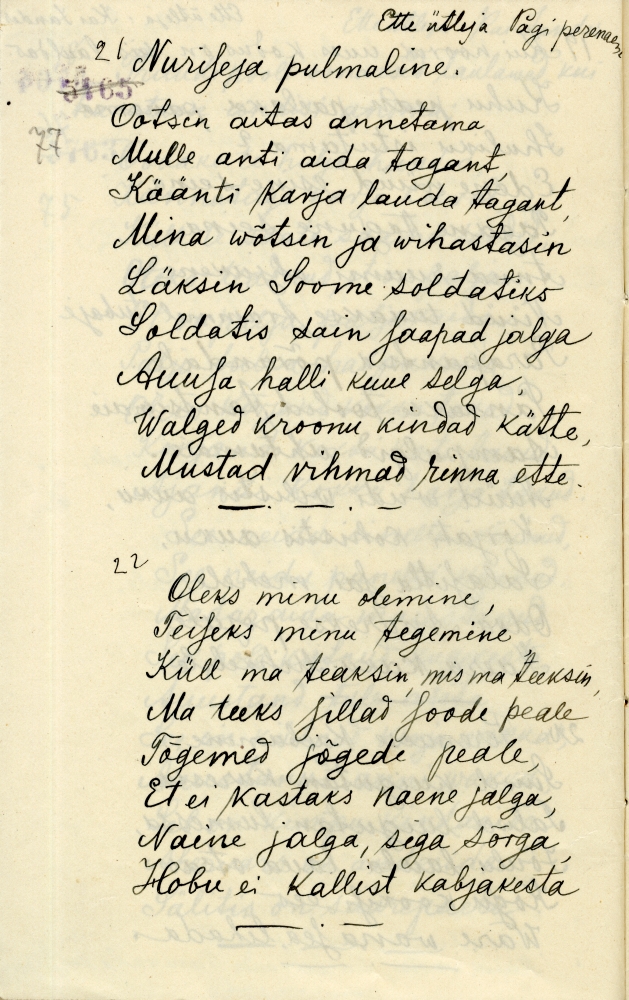 Ette ütleja Pägi perenaene
21 Nuriseja pulmaline.
5165
77
Ootsin aitas annetama
Mulle anti aida tagant,
Käänti karja lauda tagant,
Mina wõtsin ja wihastasin
Läksin Soome soldatiks
Soldatis sain saapad jalga
Auusa halli kuue selga,
Walged kroonu kindad kätte,
Mustad vihmad rinna ette.
22
Oleks minu olemine,
Teiseks minu tegemine
Küll ma teaksin, mis ma teeksin,
Ma teeks sillad soode peale
Tõgemed jõgede peale,
Et ei kastaks naene jalga,
Naine jalga, siga sõrga,
Hobu ei kallist kabjakesta